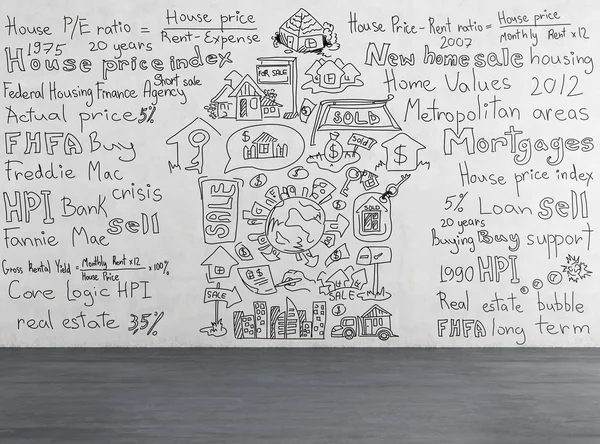 House P/E ratio = House price / Rent - Expense
1975 20 years
House price index
Short sale
Federal Housing Finance Agency
Actual price 5%
FHFA Buy
Freddie Mac
crisis
HPI Bank
sell
Fannie Mae
Gross Rental Yield = Monthly Rent x12 / House Price x 100%
Core Logic HPI
real estate 35%
FOR SALE
SOLD
$
$
Sold
$
SALE
$
$
SOLD
$
SALE
SALE
$
House Price - Rent ratio = House price / Monthly Rent x12
2007
New home sale housing
Home Values 2012
Metropolitan areas
Mortgages
House price index
5% Loan Sell
20 years
Buying Buy support
1990 HPI
Real estate bubble
FHFA long term